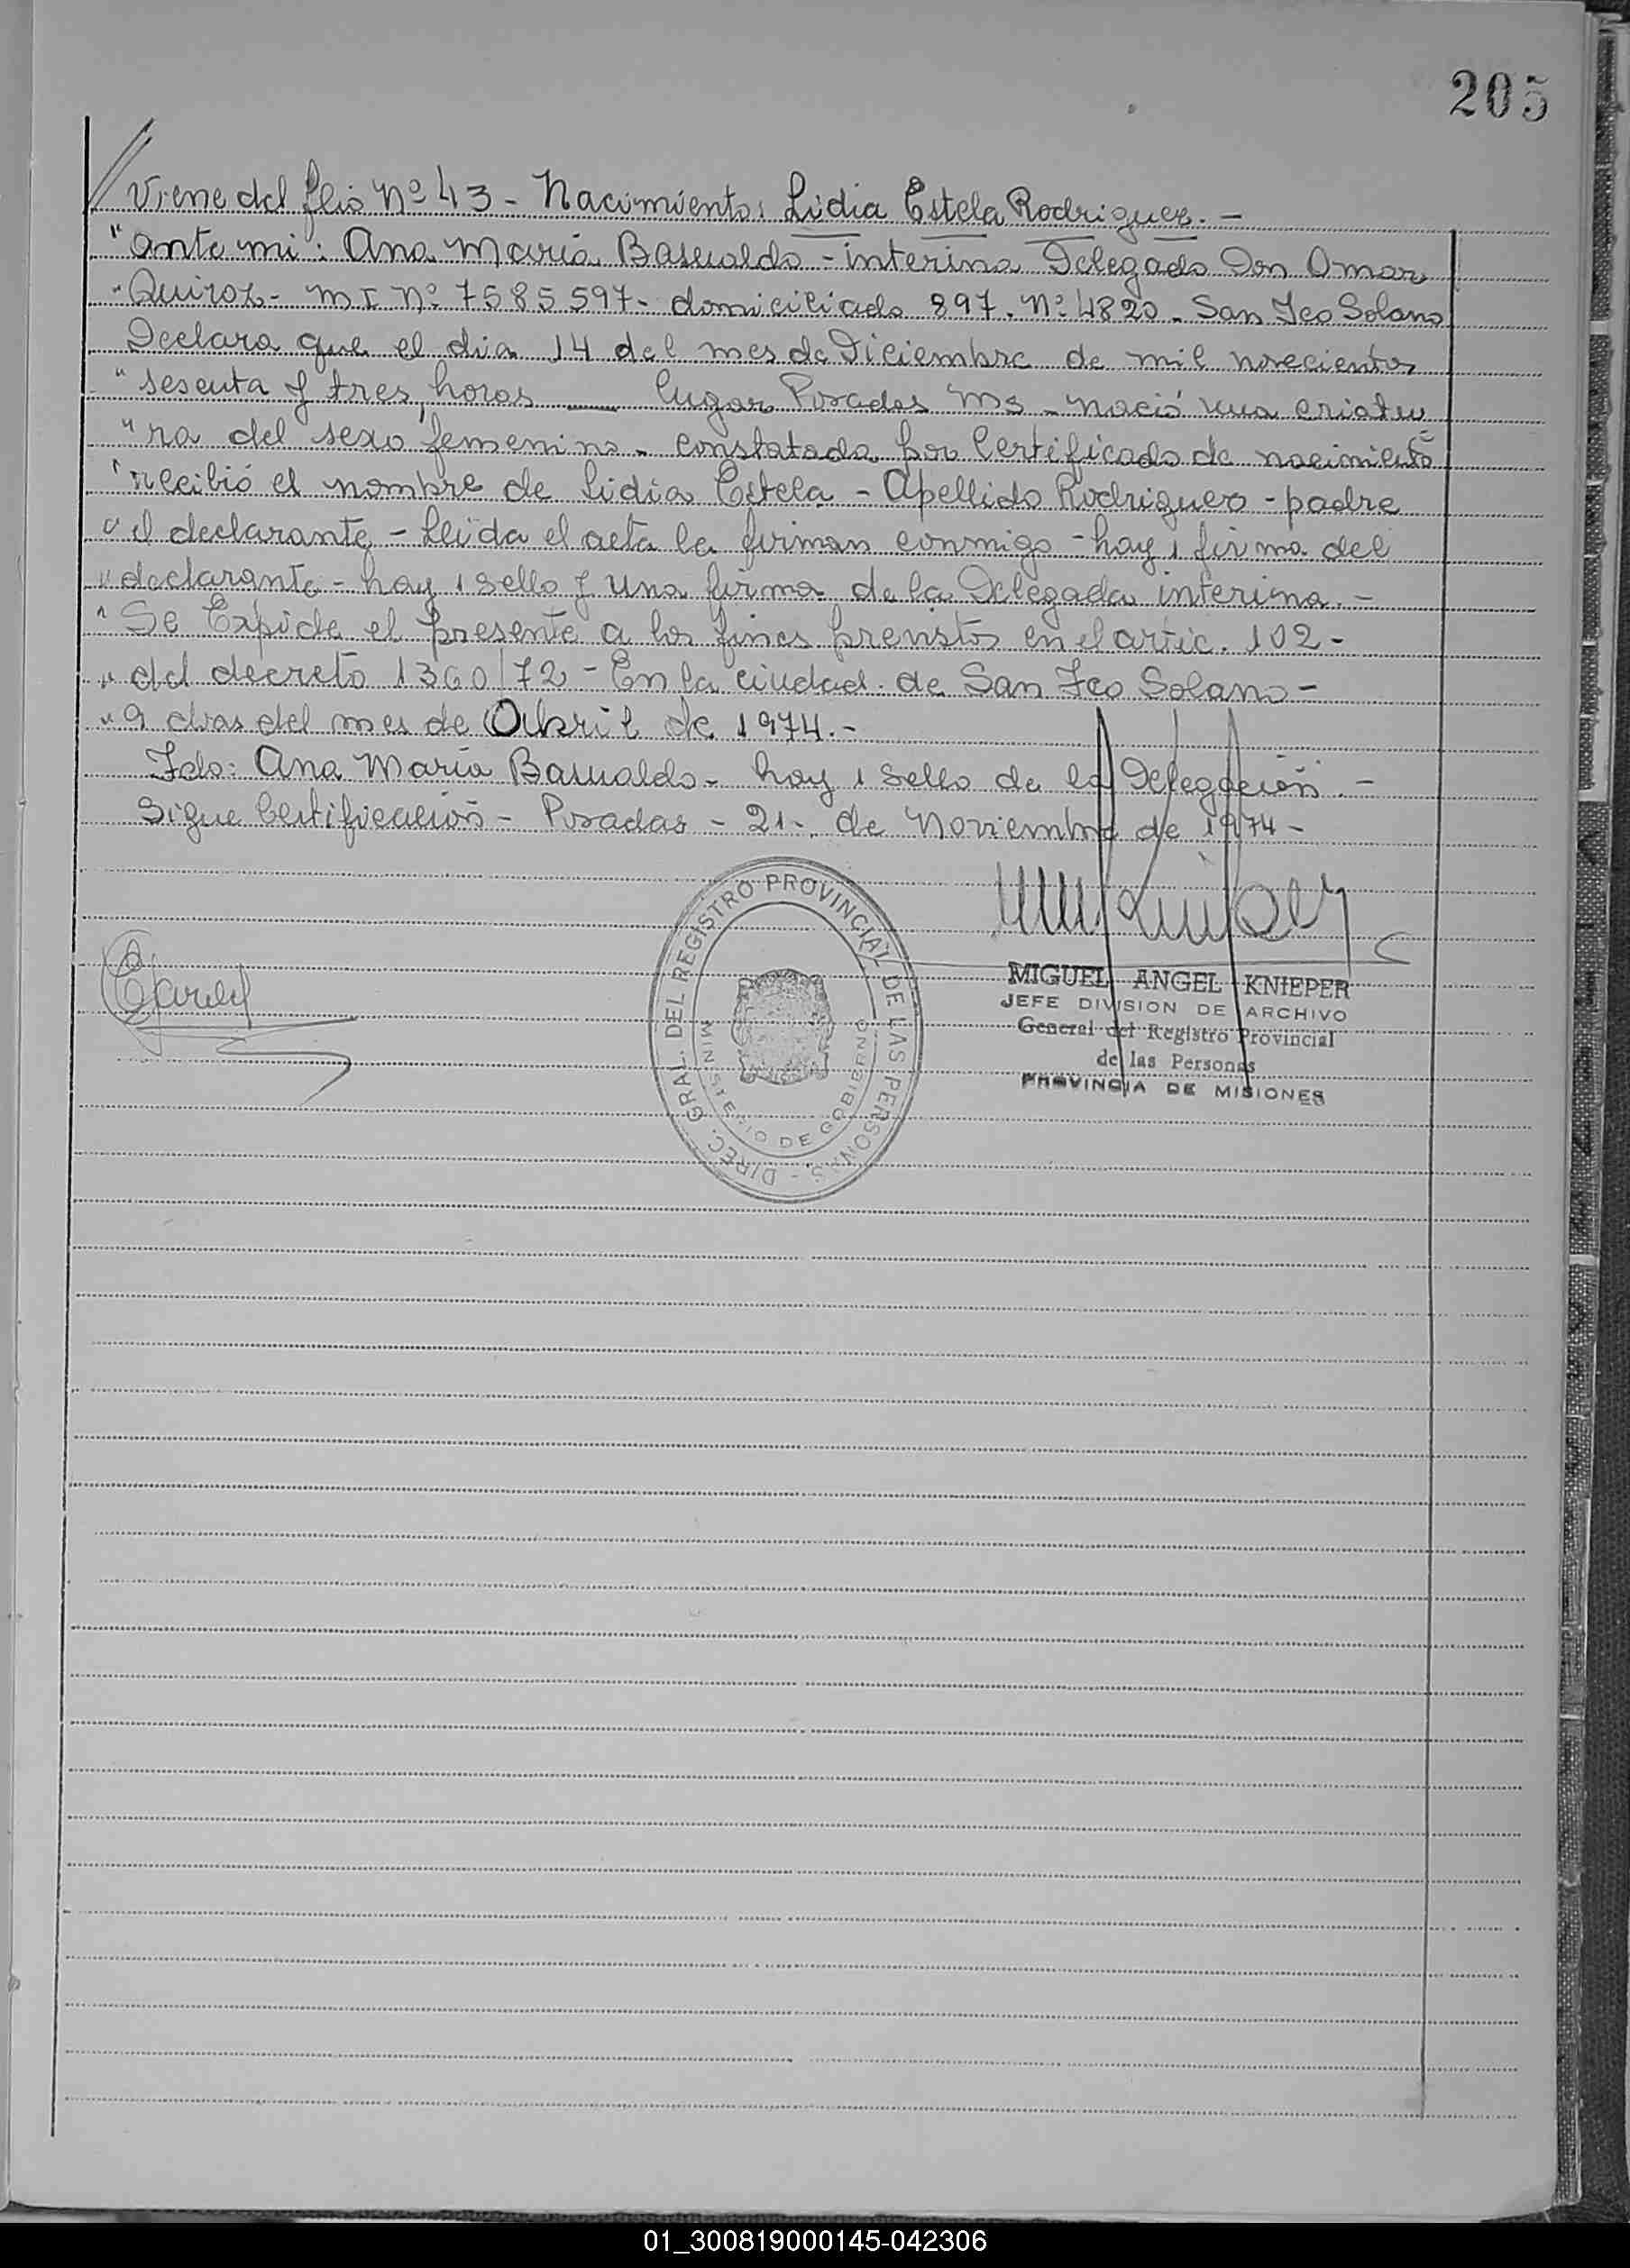 205
Viene del flio Nº 43 - Nacimiento: Lidia Estela Rodriguez. -
"ante mi: Ana Maria Basualdo - interina Delegado Don Omar
"Quiroz - M I Nº 7585597 - domiciliado 897. Nº 4820 - San Fco Solano
Declara que el dia 14 del mes de Diciembre de mil novecientos
"sesenta y tres, horas — lugar Posadas Ms - nació una criatu
"ra del sexo femenino - constatada por Certificado de nacimiento
"recibió el nombre de Lidia Estela - Apellido Rodriguez - padre
"el declarante - Leida el acta la firman conmigo - hay 1 firma del
"declarante - hay 1 sello y una firma de la Delegada interina. -
"Se Expide el presente a los fines previstos en el artic. 102 -
"del decreto 1360/72 - En la ciudad de San Fco Solano -
"9 dias del mes de Abril de 1974. -
Fdo: Ana Maria Basualdo - hay 1 Sello de la Delegación. -
Sigue Certificación - Posadas - 21 - de Noviembre de 1974 -
DIREC. GRAL. DEL REGISTRO PROVINCIAL DE LAS PERSONAS -
MINISTERIO DE GOBIERNO
MIGUEL ANGEL KNIEPER
JEFE DIVISION DE ARCHIVO
General del Registro Provincial
de las Personas
PROVINCIA DE MISIONES
01_300819000145-042306